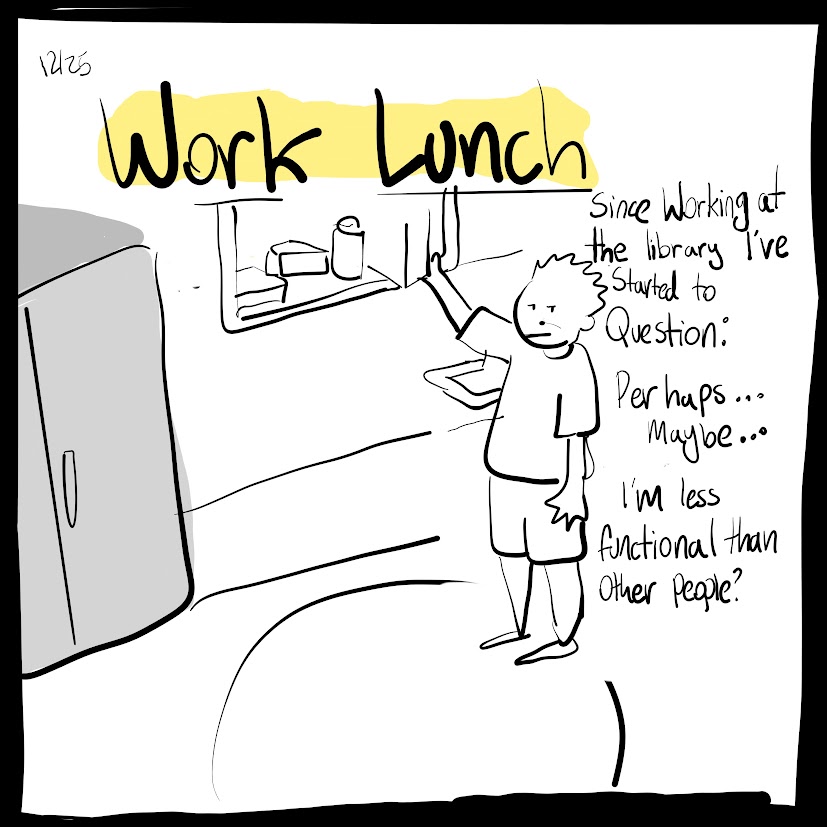 12/25
Work Lunch
Since Working at
the library I've
Started to
Question:
Perhaps...
Maybe...
I'm less
functional than
other people?